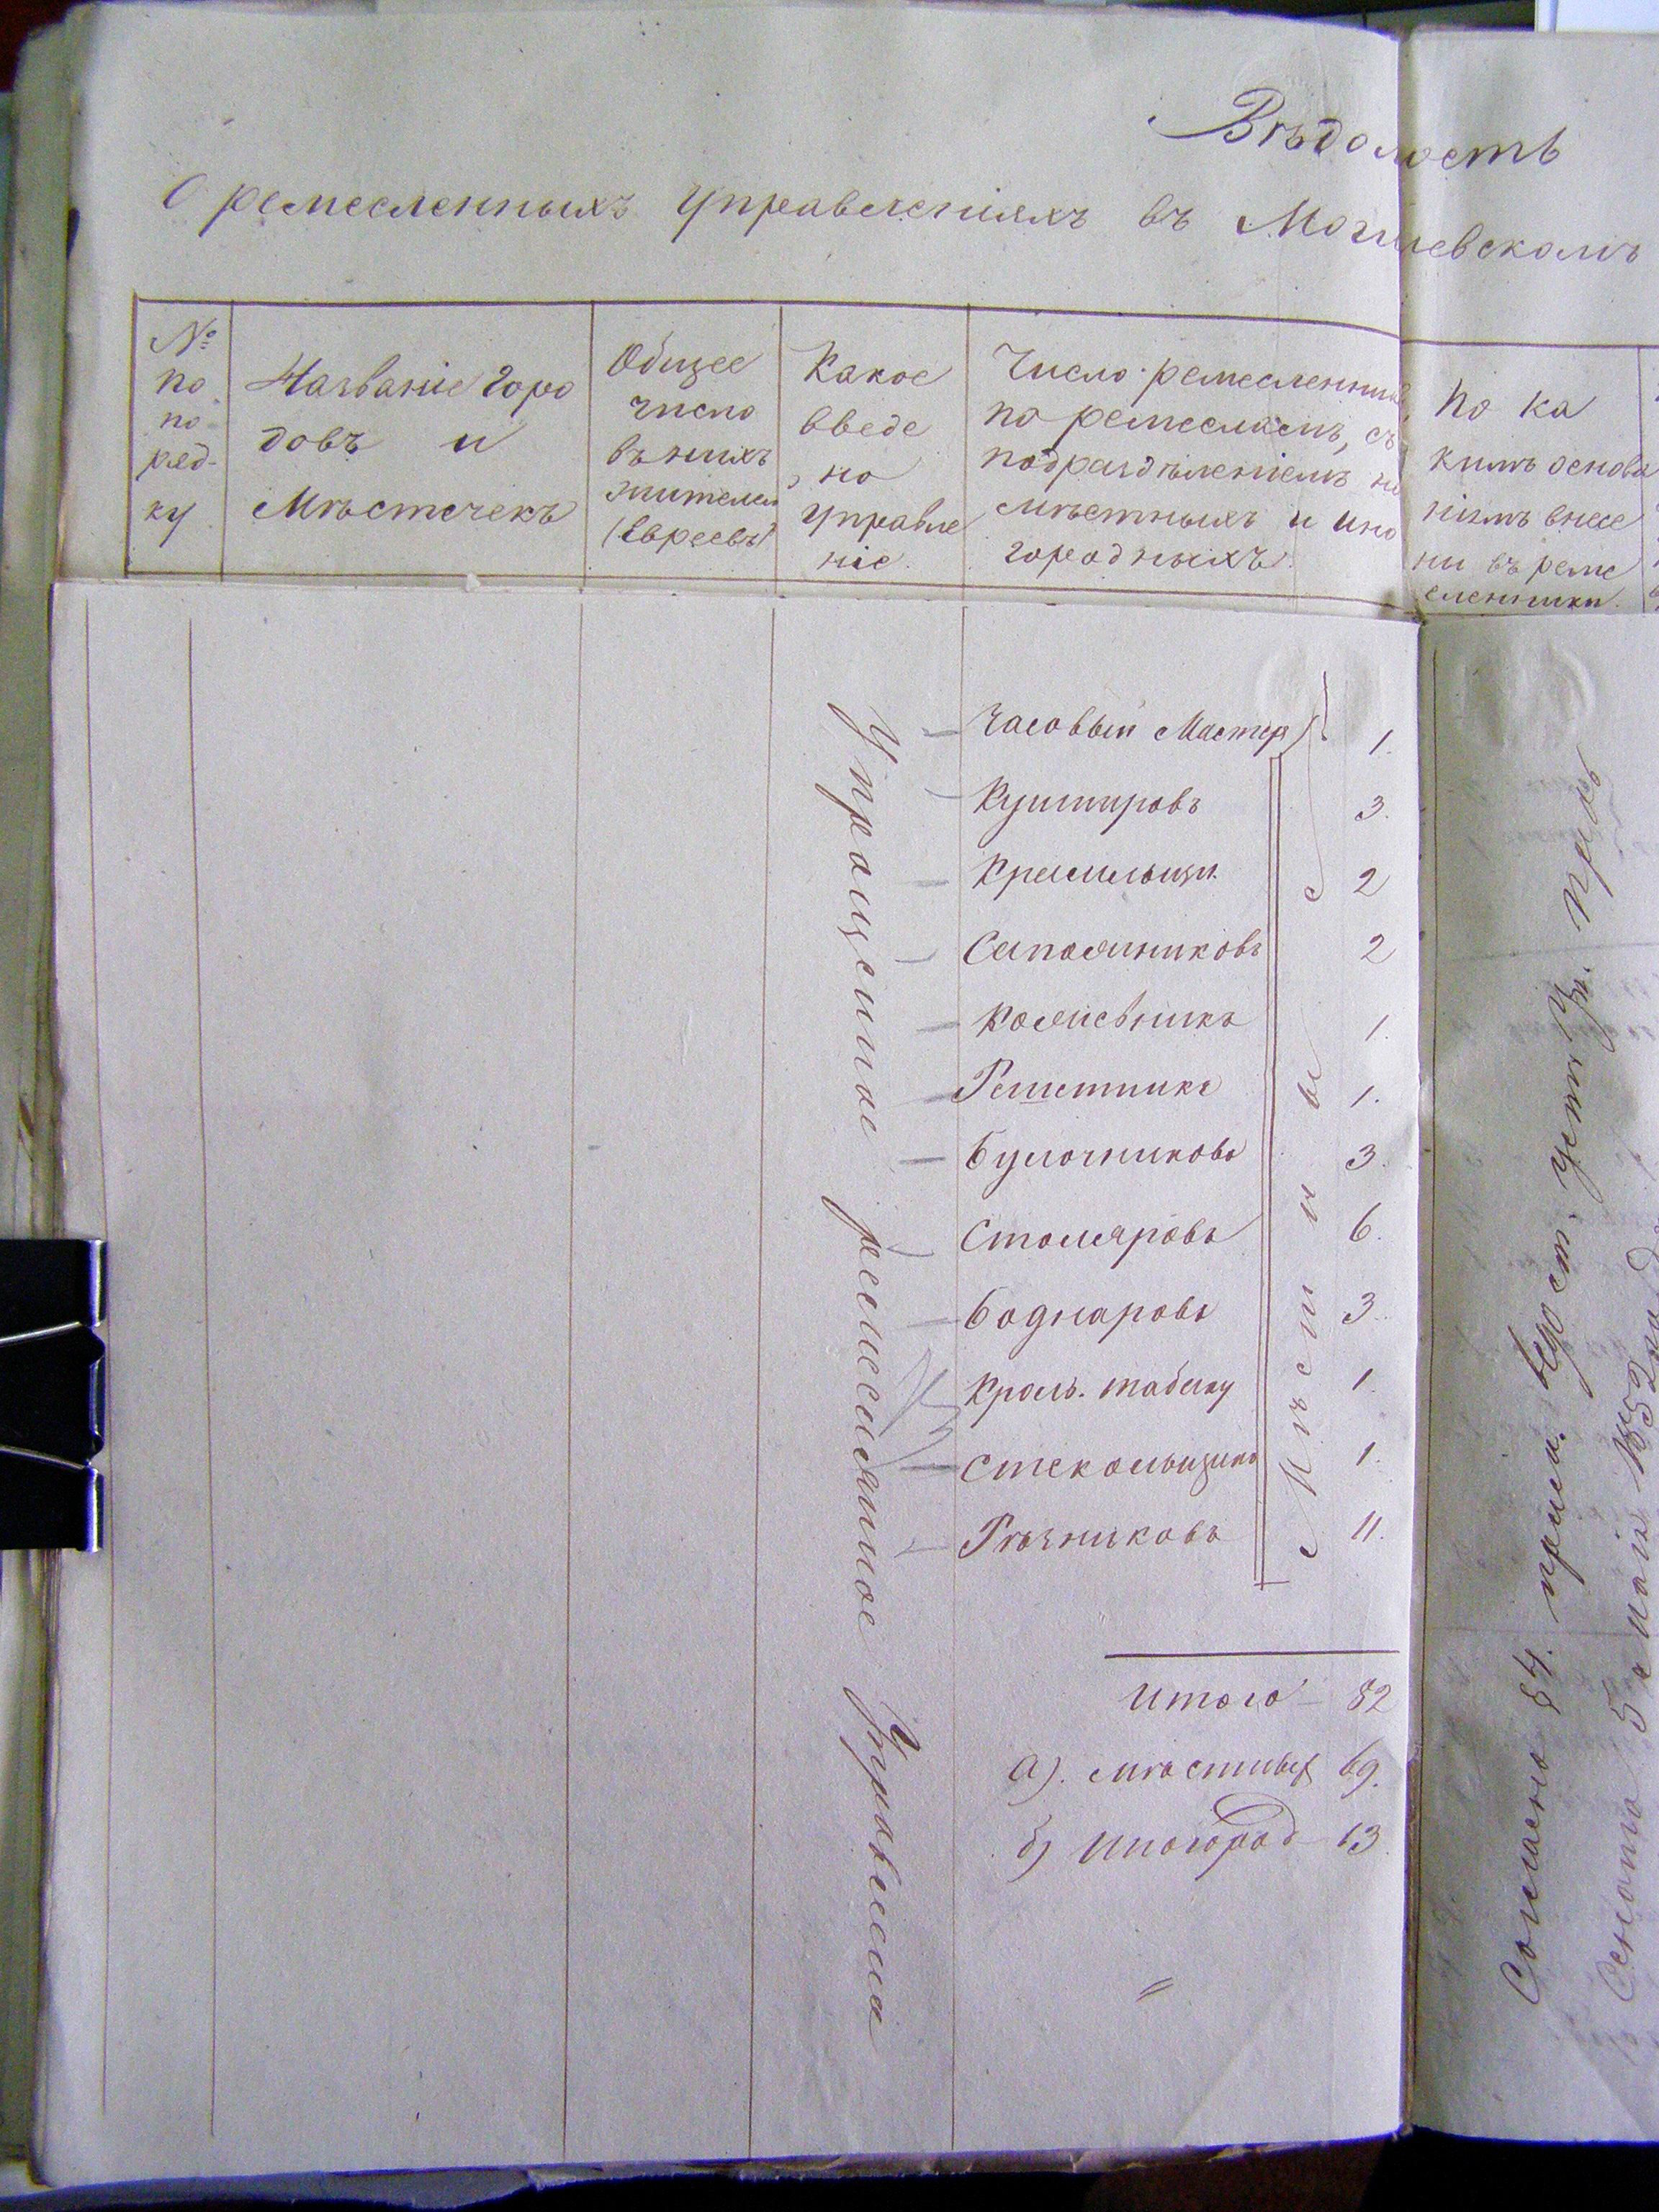 Вѣдомость
О ремесленныхъ Управленіяхъ въ Могилевскомъ
№ по порядку
Названіе Горо
довъ и
Мѣстечекъ
Общее
число
въ нихъ
жителей
(Евреевъ)
Какое
введе
но
Управле
ніе.
Число ремесленник
по ремесламъ, съ
подраздѣленіемъ на
мѣстныхъ и ино
городныхъ.
По ка
кимъ основа
ніямъ внесе
ны въ реме
сленники.
Упрощенное ремесленное Управленіе
Часовый Мастеръ 1.
Кушнировъ 3.
Красильщи. 2
Сапожниковъ 2
1.
Решетникъ 1.
Булочниковъ 3.
Столяровъ 6.
Боднаровъ 3.
Крош. табаку 1.
Стекольщикъ 1.
Рѣзниковъ 11.
Мѣстные
Итого — 82
а). мѣстныхъ 69.
б) Иногород — 13.
Согласно § 4. прил. уст.